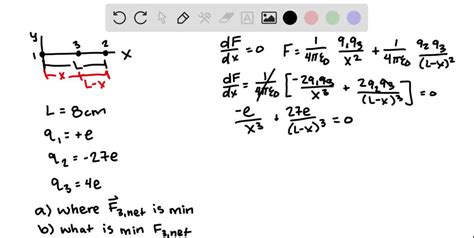 y
1 3 2 x
L
x L-x
L = 8cm
q₁ = +e
q₂ = -27e
q₃ = 4e
a) where F⃗₃,net is min
b) what is min F₃,net
dF/dx = 0 F = 1/4πε₀ q₁q₃/x² + 1/4πε₀ q₂q₃/(L-x)²
dF/dx = 1/4πε₀ [ -2q₁q₃/x³ + 2q₂q₃/(L-x)³ ] = 0
-e/x³ + 27e/(L-x)³ = 0